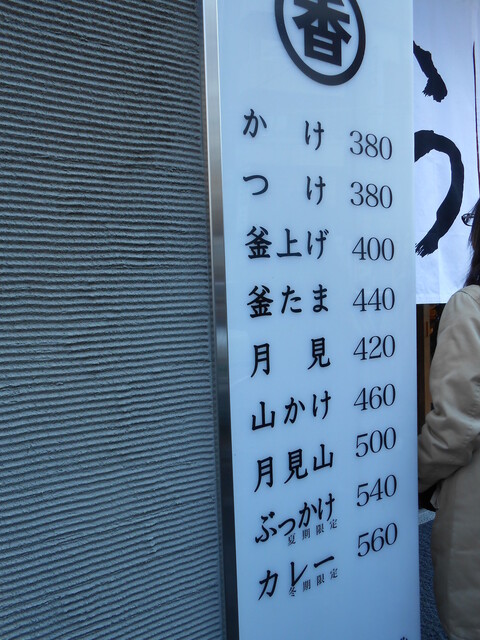 香
かけ 380
つけ 380
釜上げ 400
釜たま 440
月見 420
山かけ 460
月見山 500
ぶっかけ 540
夏期限定
カレー 560
冬期限定
う